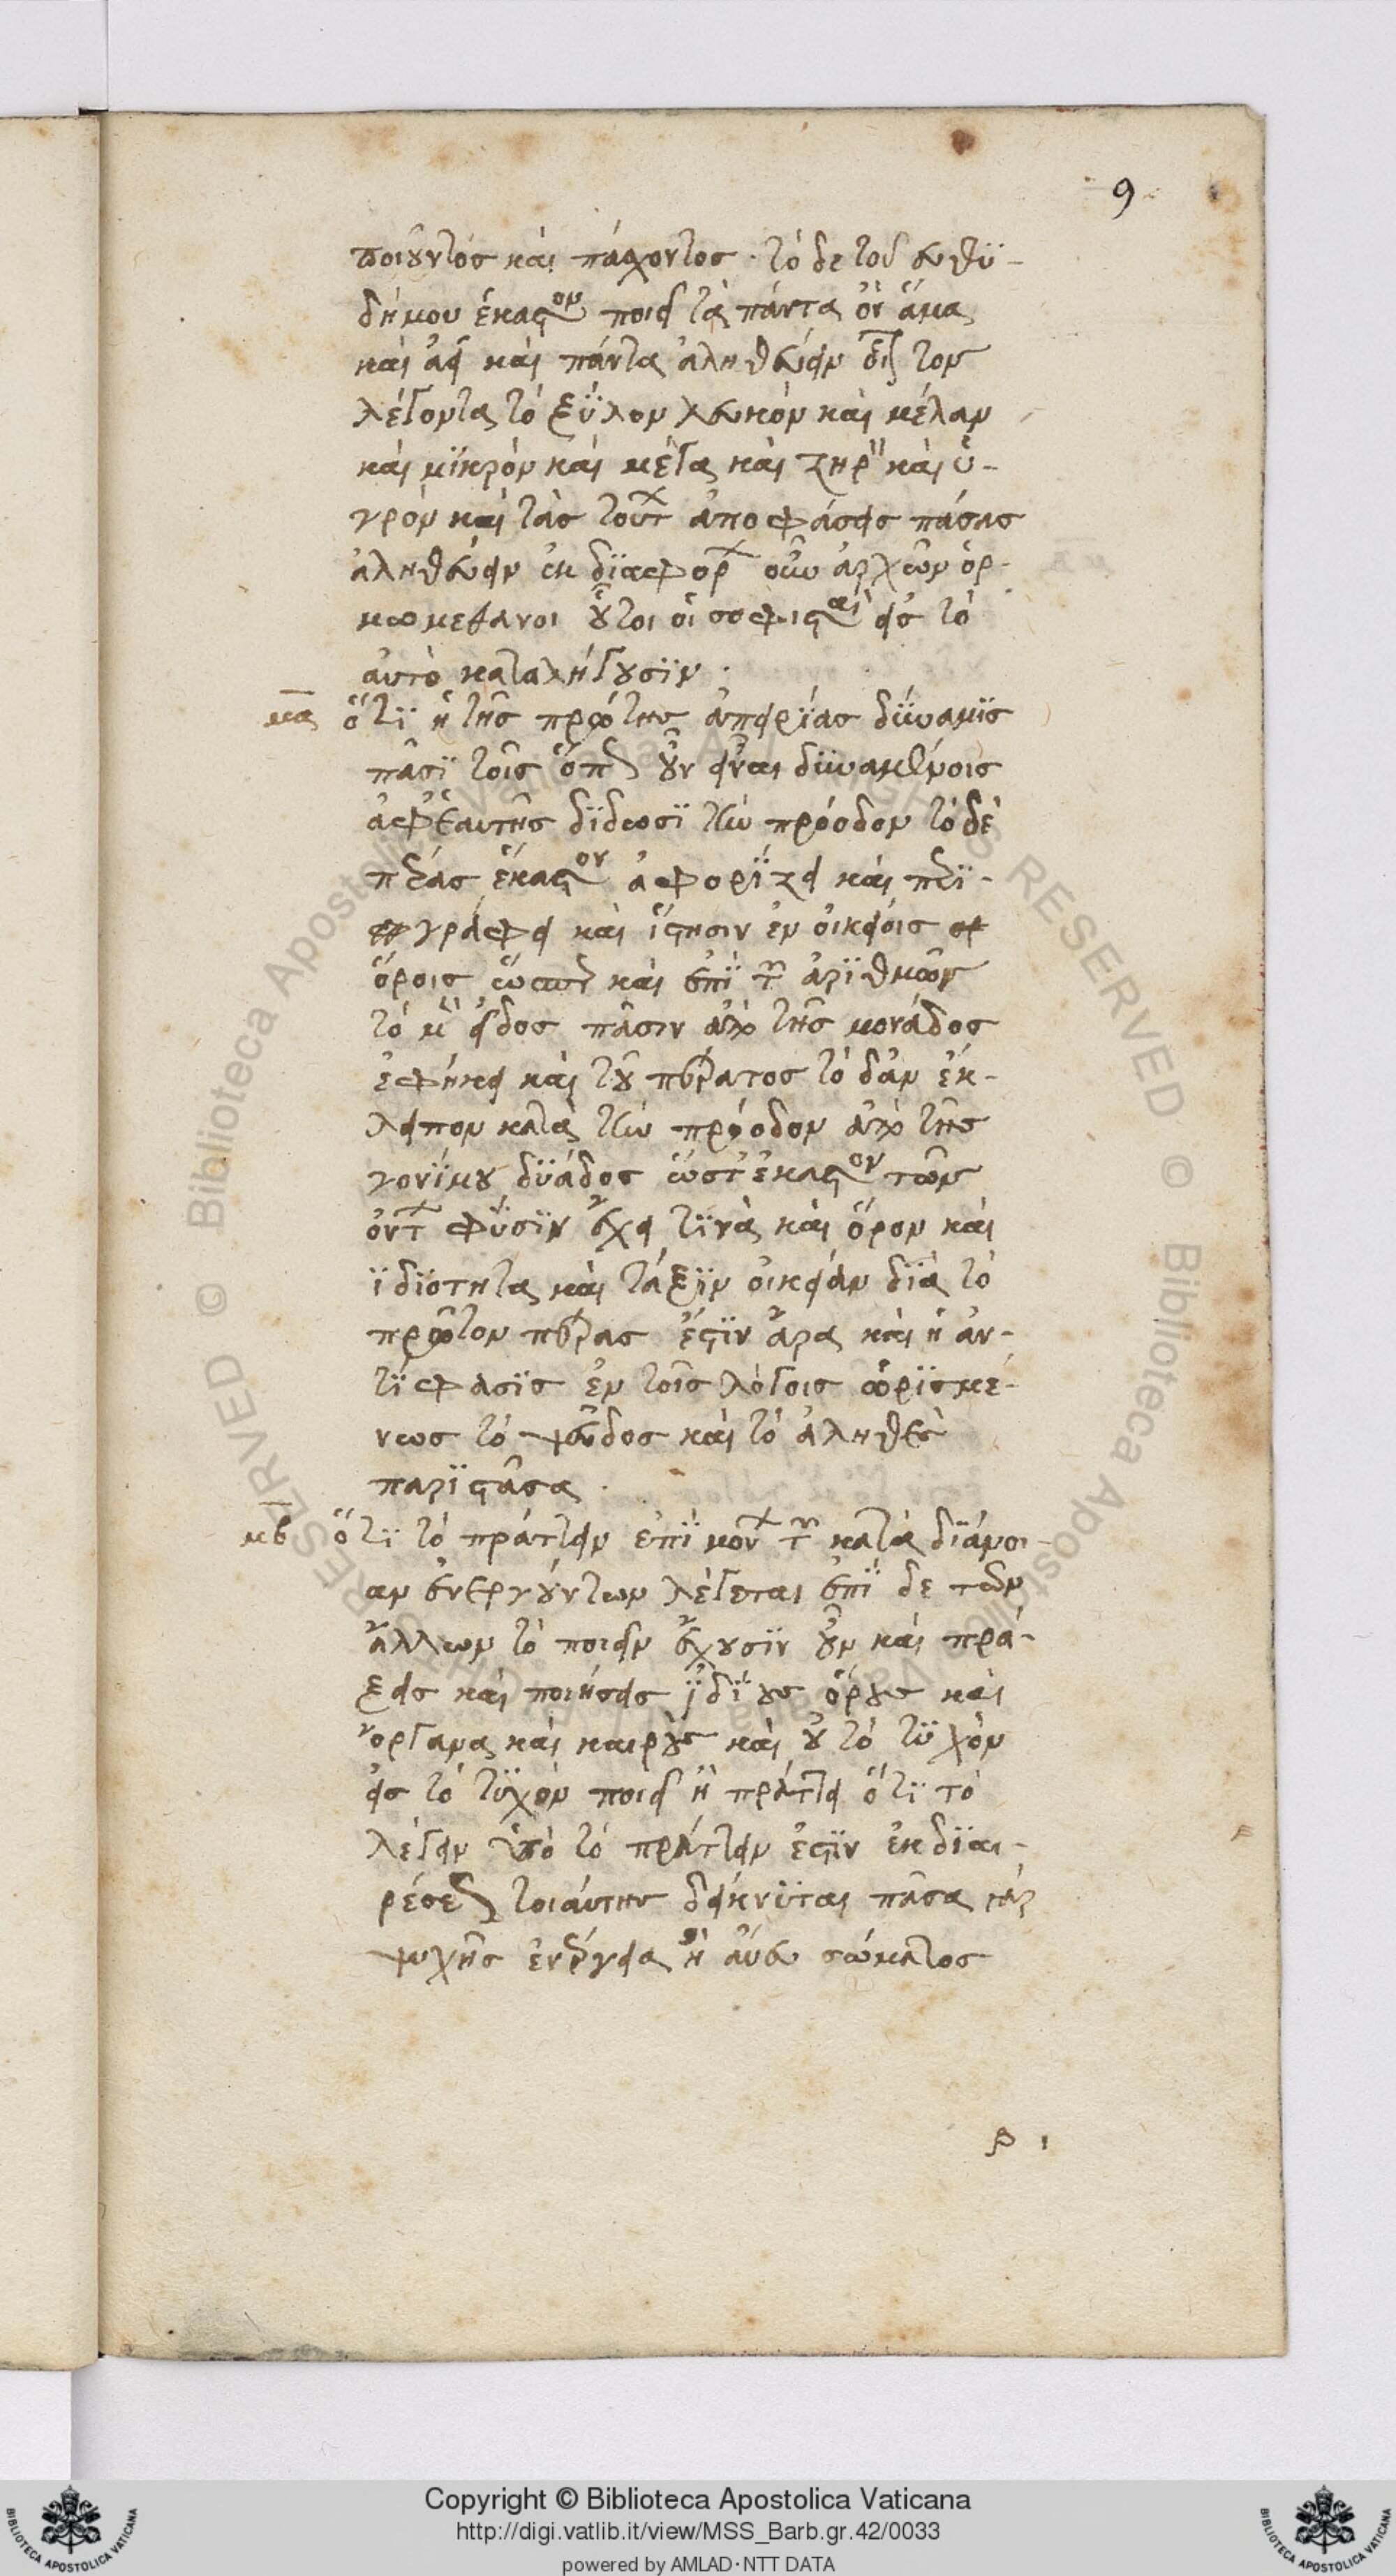 9
ποιοῦντος καὶ πάσχοντος · τὸ δὲ τοῦ εὐθϋ-
δήμου ἕκαστον ποιεῖ τὰ πάντα ὂν ἅμα
καὶ ἀεὶ καὶ πάντα ἀληθεύειν τὸν
λέγοντα τὸ ξύλον λευκὸν καὶ μέλαν
καὶ μϊκρὸν καὶ μέγα καὶ ξηρὸν καὶ ὑ-
γρὸν καὶ τὰς τούτων ἀποφάσεις πάσας
ἀληθεύειν ἐκ διαφόρων οὖν ἀρχῶν ὁρ-
μώμενοι οὗτοι οἱ σοφισταὶ εἰς τὸ
αὐτὸ καταλήγουσϊν ·
μα ὅτϊ ἡ τῆς πρώτης ἀπειρίας δύναμϊς
πᾶσϊ τοῖς ὁπωσοῦν εἶναι δϋναμένοις
ἀφ' ἑαυτῆς δίδωσϊ τὴν πρόοδον τὸ δὲ
πέρας ἕκαστον ἀφορίζει καὶ περϊ-
γράφει καὶ ἵστησιν ἐν οἰκείοις
ὅροις ὥσπερ καὶ ἐπὶ τῶν ἀρϊθμῶν
τὸ μὲν εἶδος πᾶσιν ἀπὸ τῆς μονάδος
ἐφήκει καὶ τοῦ πέρατος τὸ δ' ἀν έκ-
λειπον κατὰ τὴν πρόοδον ἀπὸ τῆς
γονίμου δϋάδος ὥστ' ἕκαστον τῶν
ὄντων φύσϊν ἔχει τϊνὰ καὶ ὅρον καὶ
ϊδϊότητα καὶ τάξϊν οἰκείαν δϊὰ τὸ
πρῶτον πέρας ἔστϊν ἄρα καὶ ἡ ἀν-
τίφασϊς ἐν τοῖς λόγοις ὡρϊσμέ-
νως τὸ ψεῦδος καὶ τὸ ἀληθὲς
παρϊστᾶσα ·
μβ ὅτϊ τὸ πράττειν ἐπϊ μόνων τῶν κατὰ δϊάνοι-
αν ἐνεργούντων λέγεται ἐπὶ δὲ τῶν
ἄλλων τὸ ποιεῖν ἔχουσϊν οὖν καὶ πρά-
ξεις καὶ ποιήσεις ἰδίους ὅρους καὶ
ὄργανα καὶ καιροὺς καὶ οὐ τὸ τϋχὸν
εἰς τὸ τϋχὸν ποιεῖ ἢ πράττει ὅτϊ τὸ
λέγειν ὑπὸ τὸ πράττειν ἐστϊν ἐκ δϊαι-
ρέσεως τοιαύτης δείκνϋται πᾶσα γὰρ
ψυχῆς ἐνέργεια ἢ ἄνευ σώματος
Copyright © Biblioteca Apostolica Vaticana
http://digi.vatlib.it/view/MSS_Barb.gr.42/0033
powered by AMLAD·NTT DATA